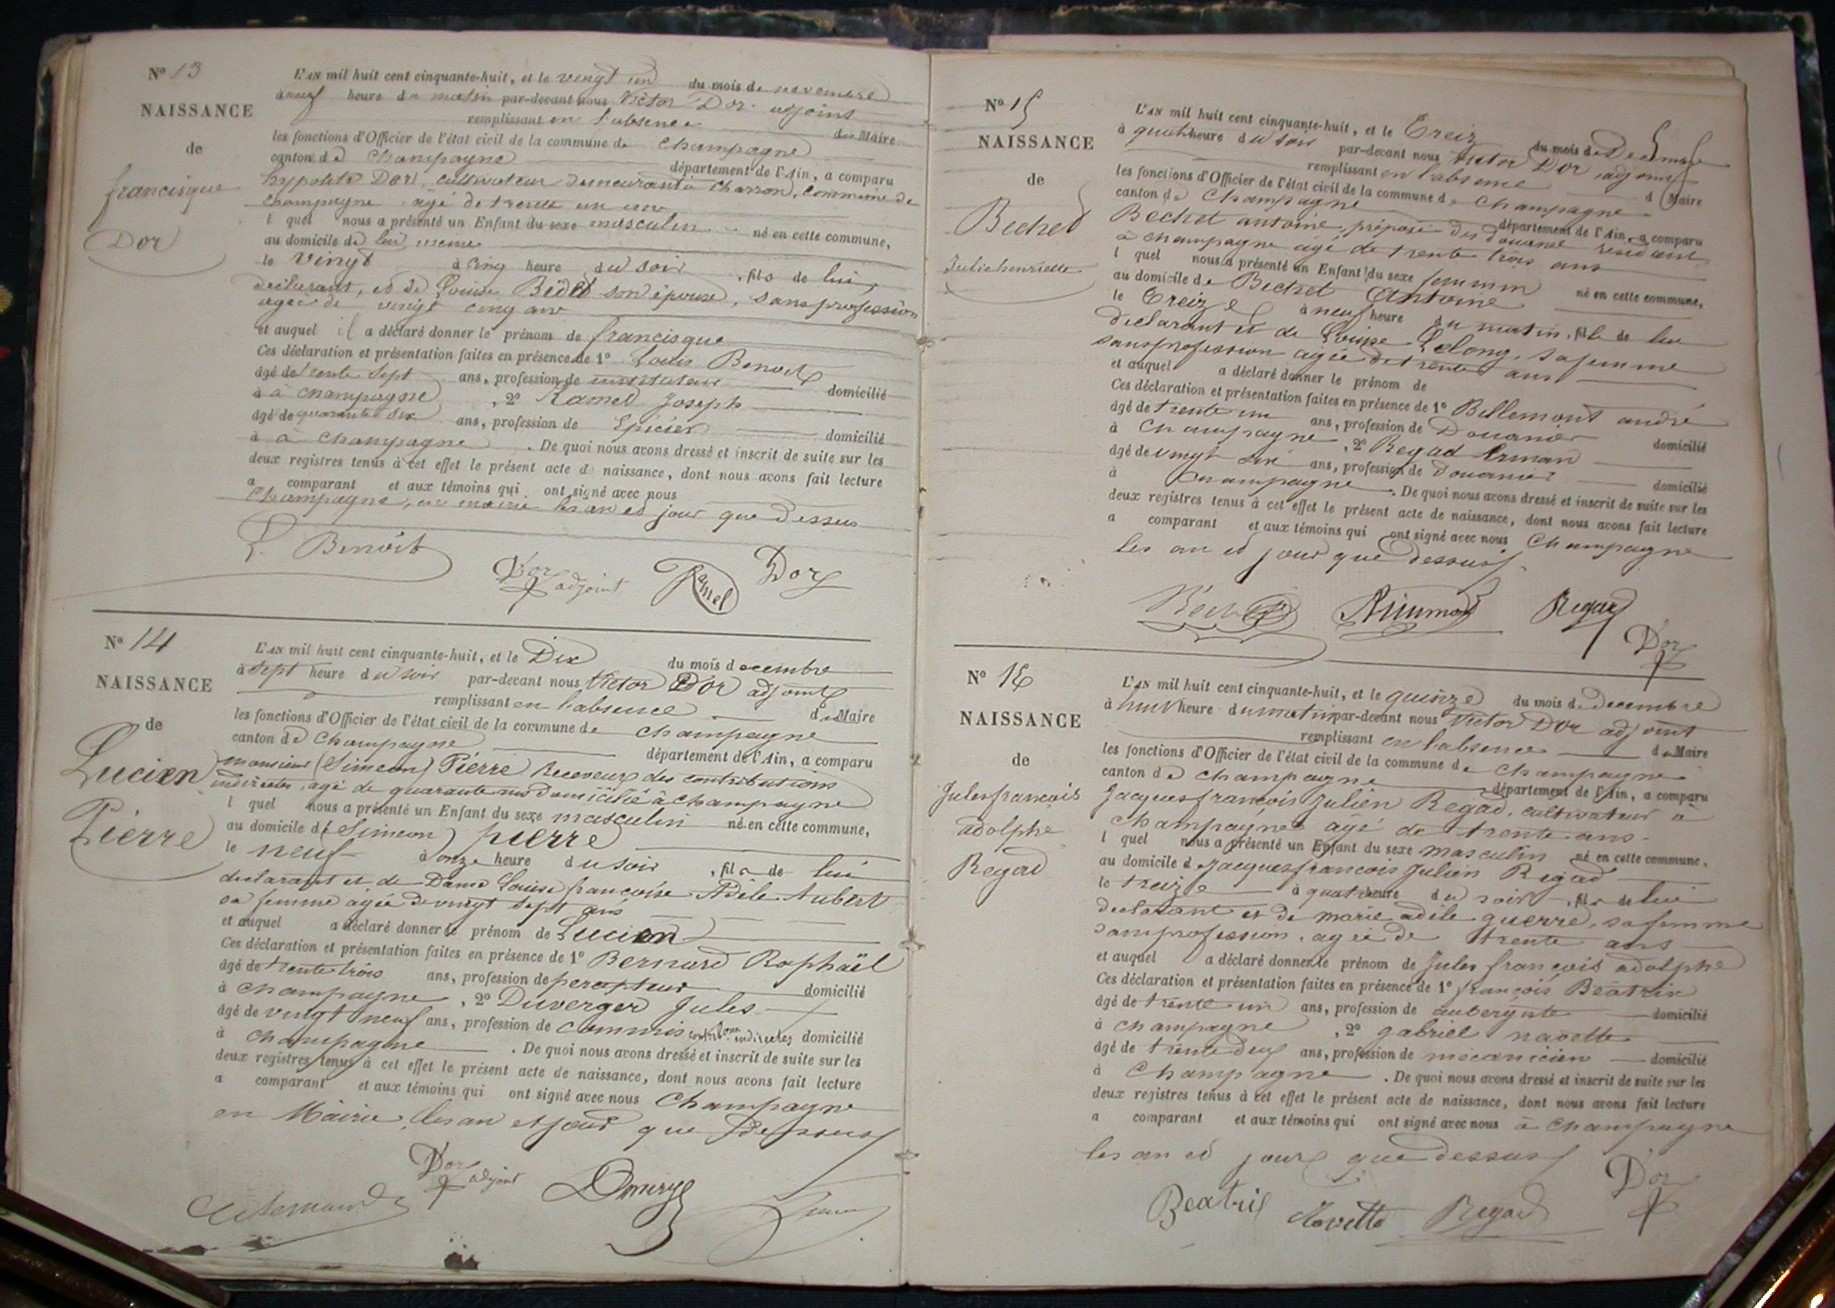 Nº 13
NAISSANCE
de
francisque
Dor
L'AN mil huit cent cinquante-huit, et le vingt un du mois de novembre
à neuf heure du matin par-devant nous Victor Dor adjoint
remplissant en l'absence du Maire
les fonctions d'Officier de l'état civil de la commune de champagne
canton de champagne département de l'Ain, a comparu
hypolite Dor, cultivateur demeurant à charron, commune de
champagne, agé de trente un ans
lequel nous a présenté un Enfant du sexe masculin né en cette commune,
au domicile de lui meme
le vingt à cinq heure du soir, fils de lui
déclarant, et de Louise Bidet son épouse, sans profession
agée de vingt cinq ans
et auquel il a déclaré donner le prénom de francisque
Ces déclaration et présentation faites en présence de 1º Louis Benoit
âgé de trente sept ans, profession de instituteur domicilié
à à champagne, 2º Ramel Joseph
âgé de quarante six ans, profession de Epicier domicilié
à à champagne. De quoi nous avons dressé et inscrit de suite sur les
deux registres tenus à cet effet le présent acte de naissance, dont nous avons fait lecture
a comparant et aux témoins qui ont signé avec nous
champagne, en mairie les an et jour que dessus
L. Benoit
Dor adjoint
Ramel
Dor
Nº 14
NAISSANCE
de
Lucien
Pierre
L'AN mil huit cent cinquante-huit, et le Dix du mois decembre
à sept heure du soir par-devant nous Victor Dor adjoint
remplissant en l'absence du Maire
les fonctions d'Officier de l'état civil de la commune de champagne
canton de champagne département de l'Ain, a comparu
monsieur (Simeon) Pierre Receveur des contributions
indirectes, agé de quarante domicilié à champagne
lequel nous a présenté un Enfant du sexe masculin né en cette commune,
au domicile de (Simeon) pierre
le neuf à onze heure du soir, fils de lui
declarant et de Dame Louise francoise Adèle Aubert
sa femme agée de vingt sept ans
et auquel a déclaré donner le prénom de Lucien
Ces déclaration et présentation faites en présence de 1º Bernard Raphaël
âgé de trente trois ans, profession de percepteur domicilié
à champagne, 2º Duverger Jules
âgé de vingt neuf ans, profession de commis indirectes domicilié
à champagne. De quoi nous avons dressé et inscrit de suite sur les
deux registres tenus à cet effet le présent acte de naissance, dont nous avons fait lecture
a comparant et aux témoins qui ont signé avec nous champagne
en Mairie, les an et jour que dessus
Dor adjoint
Nº 15
NAISSANCE
de
Bechet
Julie henriette
L'AN mil huit cent cinquante-huit, et le Treize du mois de Decembre
à quatre heure du soir par-devant nous Victor Dor adjoint
remplissant en l'absence d Maire
les fonctions d'Officier de l'état civil de la commune de champagne
canton de champagne département de l'Ain, a comparu
Bechet antoine, préposé des douanes résidant
à champagne agé de trente trois ans
lequel nous a présenté un Enfant du sexe feminin né en cette commune,
au domicile de Bechet Antoine
le Treize à neuf heure du matin, file de lui
declarant et de Louise Lelong, sa femme
sans profession agée de trente ans
et auquel a déclaré donner le prénom de
Ces déclaration et présentation faites en présence de 1º Billemont andré
âgé de trente un ans, profession de Douanier domicilié
à champagne, 2º Regad Erman
âgé de vingt six ans, profession de douanier domicilié
à champagne. De quoi nous avons dressé et inscrit de suite sur les
deux registres tenus à cet effet le présent acte de naissance, dont nous avons fait lecture
a comparant et aux témoins qui ont signé avec nous champagne
les an et jour que dessus
Béchet
Regad
Dor
Nº 16
NAISSANCE
de
Jules francois
adolphe
Regad
L'AN mil huit cent cinquante-huit, et le quinze du mois de decembre
à huit heure du matin par-devant nous Victor Dor adjoint
remplissant en l'absence du Maire
les fonctions d'Officier de l'état civil de la commune de champagne
canton de champagne département de l'Ain, a comparu
Jacques francois Julien Regad, cultivateur à
champagne agé de trente ans
lequel nous a présenté un Enfant du sexe masculin né en cette commune,
au domicile d Jacques francois Julien Regad
le treize à quatre heure du soir, fils de lui
declarant et de marie adèle guerre, sa femme
sans profession, agée de trente ans
et auquel a déclaré donner le prénom de Jules francois adolphe
Ces déclaration et présentation faites en présence de 1º francois Béatrix
âgé de trente un ans, profession de aubergiste domicilié
à champagne, 2º gabriel navette
âgé de trente deux ans, profession de mécanicien domicilié
à champagne. De quoi nous avons dressé et inscrit de suite sur les
deux registres tenus à cet effet le présent acte de naissance, dont nous avons fait lecture
a comparant et aux témoins qui ont signé avec nous à champagne
les an et jour que dessus
Dor
Beatrix Navette Regad